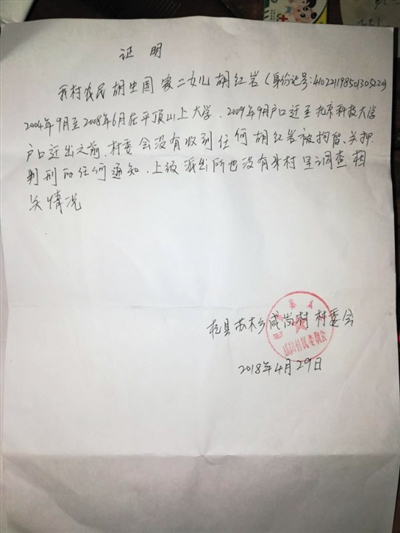 证 明
我村农民胡生国家二女儿胡红岩(身份证号:410221198501305220)
2004年9月至2008年6月在平顶山上大学，2009年9月户口迁至北京科技大学
户口迁出之前，村委会没有收到任何胡红岩被拘留、关押
判刑的任何通知，上级派出所也没有来村里调查相
关情况
杞县苏木乡咸岗村 村委会
2018年4月29日